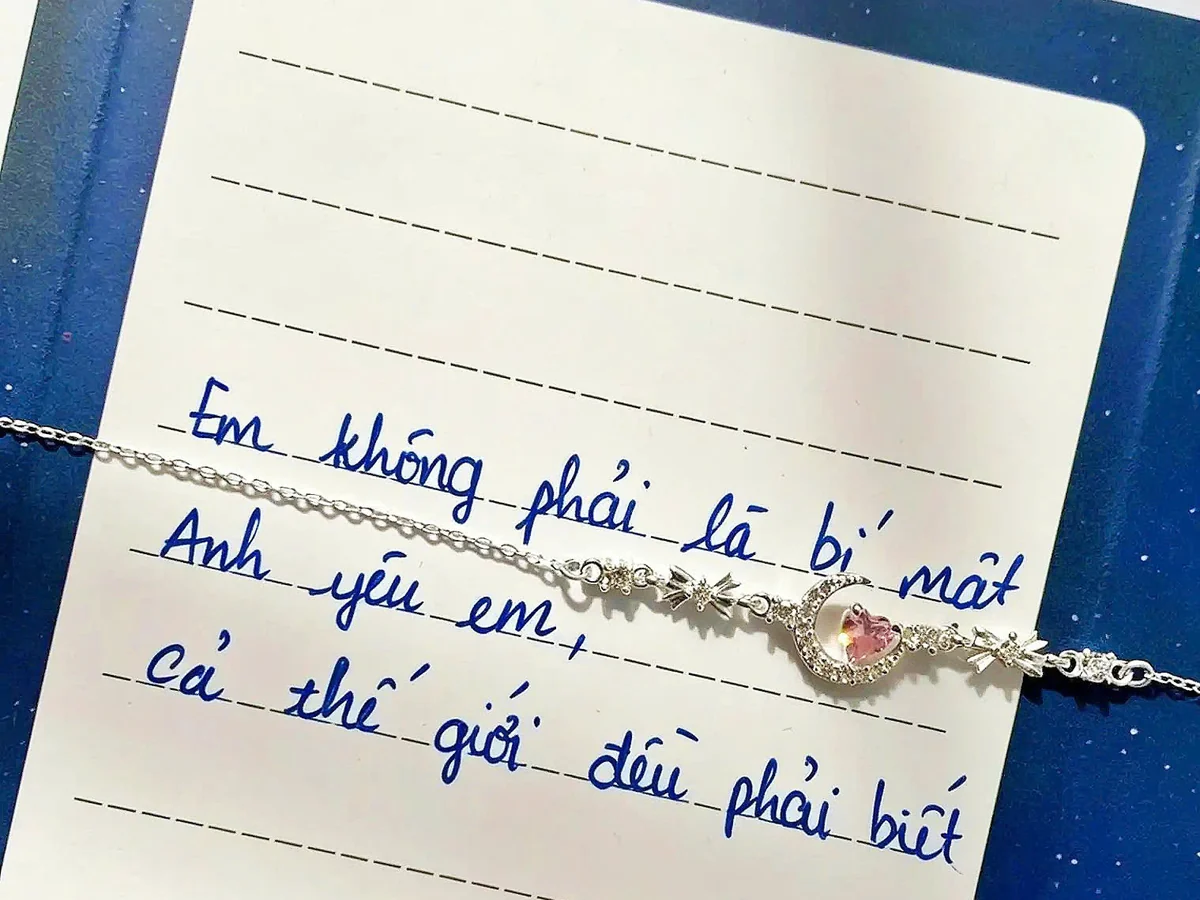 Em không phải là bí mật
Anh yêu em,
cả thế giới đều phải biết